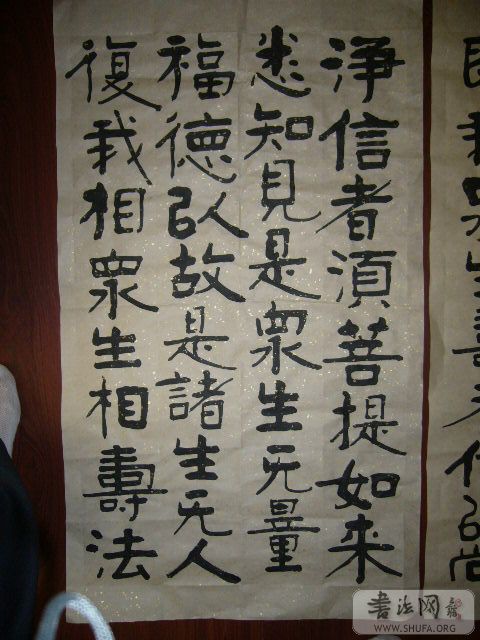 淨信者湏菩提如来
悉知見是眾生无量
福德以故是諸生无人
復我相眾生相壽法
書法网
WWW.SHUFA.ORG